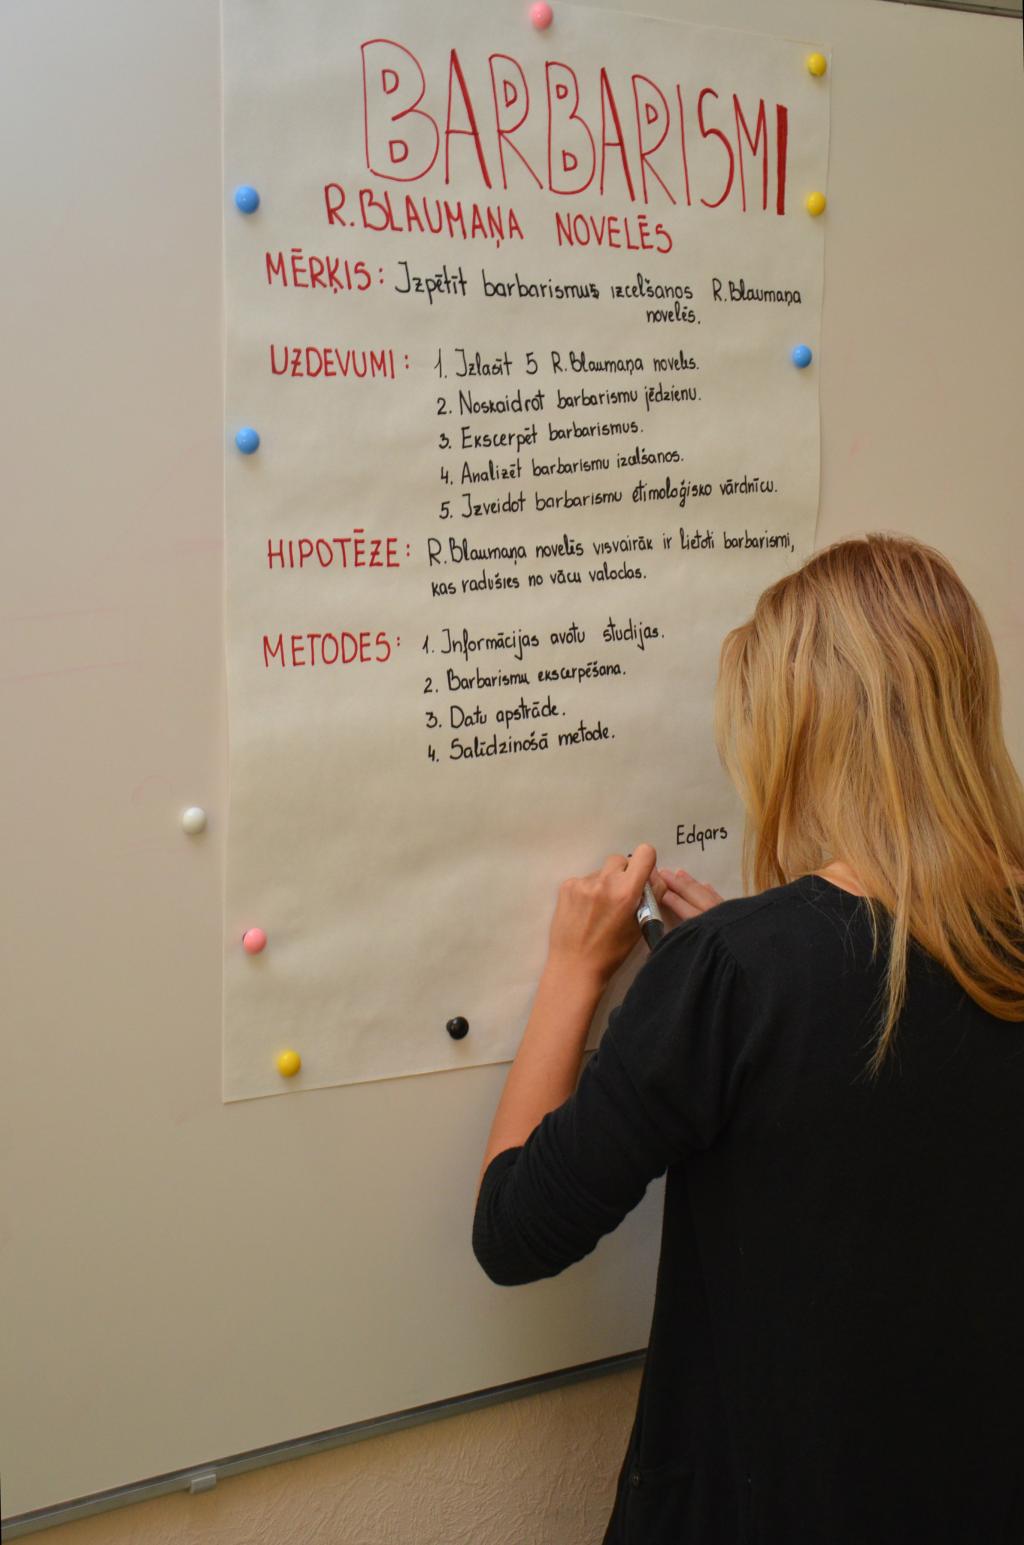 BARBARISMI
R.BLAUMAŅA NOVELĒS
MĒRĶIS: Izpētīt barbarismus izcelšanos R.Blaumaņa
novelēs.
UZDEVUMI: 1. Izlasīt 5 R.Blaumaņa noveles.
2. Noskaidrot barbarismu jēdzienu.
3. Ekscerpēt barbarismus.
4. Analizēt barbarismu izcelšanos.
5. Izveidot barbarismu etimoloģisko vārdnīcu.
HIPOTĒZE: R.Blaumaņa novelēs visvairāk ir lietoti barbarismi,
kas radušies no vācu valodas.
METODES: 1. Informācijas avotu studijas.
2. Barbarismu ekscerpēšana.
3. Datu apstrāde.
4. Salīdzinošā metode.
Edgars